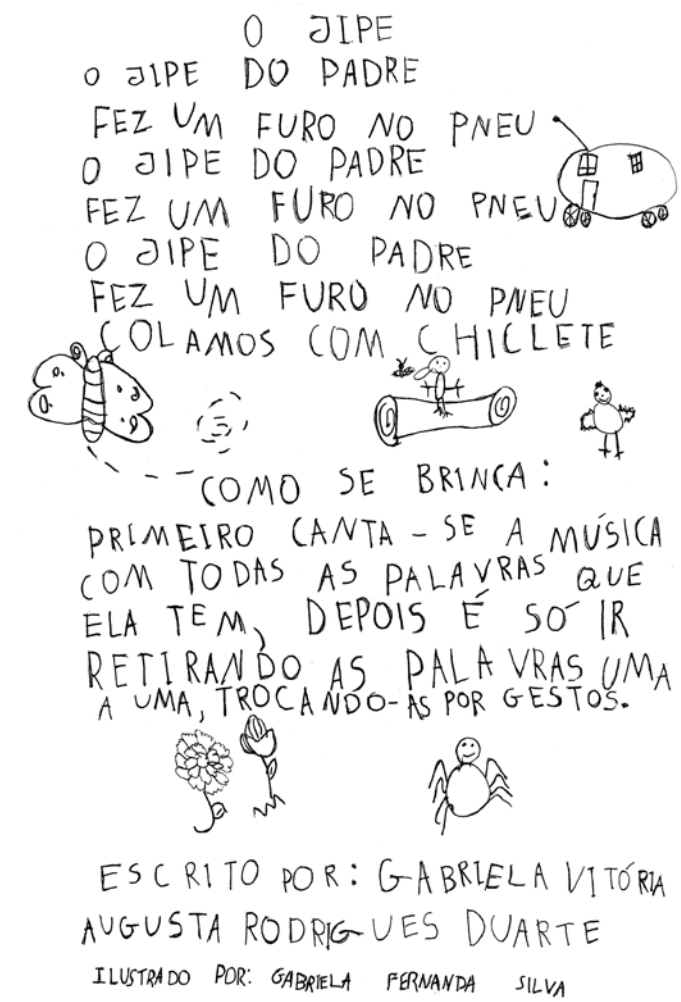 O JIPE
O JIPE DO PADRE
FEZ UM FURO NO PNEU
O JIPE DO PADRE
FEZ UM FURO NO PNEU
O JIPE DO PADRE
FEZ UM FURO NO PNEU
COLAMOS COM CHICLETE
COMO SE BRINCA:
PRIMEIRO CANTA-SE A MÚSICA
COM TODAS AS PALAVRAS QUE
ELA TEM, DEPOIS É SÓ IR
RETIRANDO AS PALAVRAS UMA
A UMA, TROCANDO-AS POR GESTOS.
ESCRITO POR: GABRIELA VITÓRIA
AUGUSTA RODRIGUES DUARTE
ILUSTRADO POR: GABRIELA FERNANDA SILVA